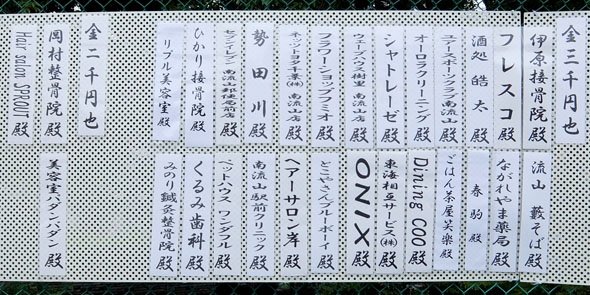 金三千円也
伊原接骨院 殿
フレスコ 殿
酒処 皓太 殿
ユアースポーツクラブ南流山 殿
オーロラクリーニング 殿
シャトレーゼ 殿
ウェーブハウス樹里 南流山店 殿
フラワーショップフミオ 殿
ネッツトヨタ千葉㈱ 南流山店 殿
勢田川 殿
セブンイレブン 南流山郵便局前店 殿
ひかり接骨院 殿
リアル美容室 殿
金二千円也
岡村整骨院 殿
Hair salon SPROUT 殿
流山 藪そば 殿
ながれやま薬局 殿
春駒 殿
ごはん茶屋芙楽 殿
Dining COO 殿
東海相互サービス㈱ 殿
ONIX 殿
どこやさんブルーボーイ 殿
ヘアーサロン岸 殿
南流山駅前クリニック 殿
ペットハウス ワンダフル 殿
くるみ歯科 殿
みのり鍼灸整骨院 殿
美容室パタンパタン 殿